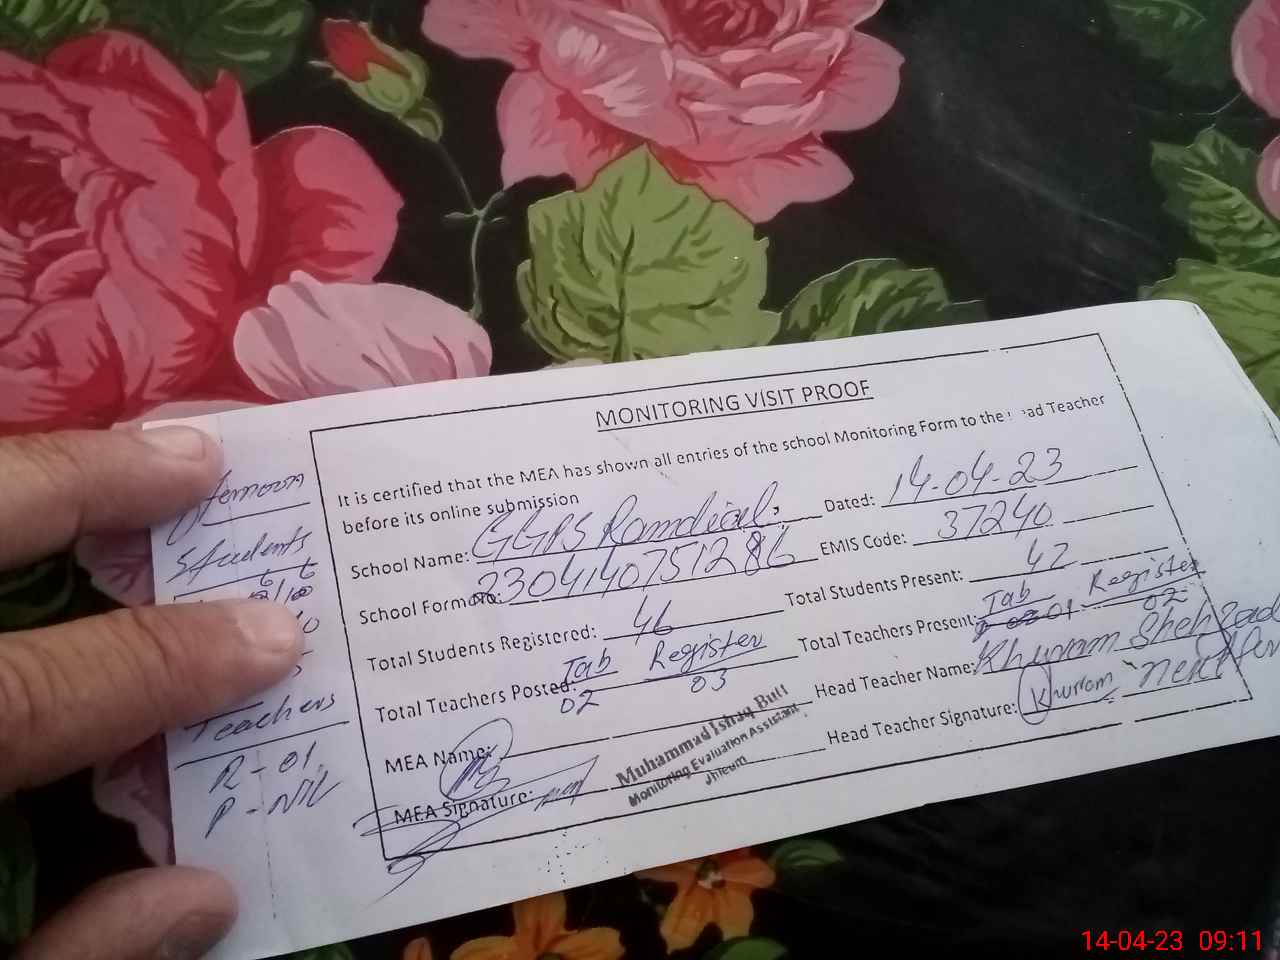 MONITORING VISIT PROOF
It is certified that the MEA has shown all entries of the school Monitoring Form to the ad Teacher
before its online submission
School Name: GGPS Ramdial. Dated: 14-04-23
School Form 230414075128 EMIS Code: 37240
Total Students Registered: 46 Total Students Present: 42
Total Teachers Posted: Tab 02 Register 03 Total Teachers Present: Tab 01 Register 02
MEA Name: Head Teacher Name: Khuram Shehzad
MEA Signature: Head Teacher Signature: Khurram
Muhammad Ishaq Butt
Monitoring Evaluation Assistant
Jhleum
Students
Teachers
R - 01
P - Nil
14-04-23 09:11